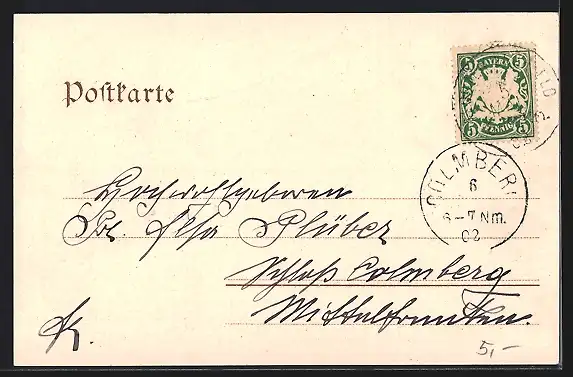 Postkarte
5 BAYERN 5
5 PFENNIG 5
COLMBERG
6
6–7 Nm.
02
Hochwohlgeboren
Schloß Colmberg
Mittelfranken.
5,–